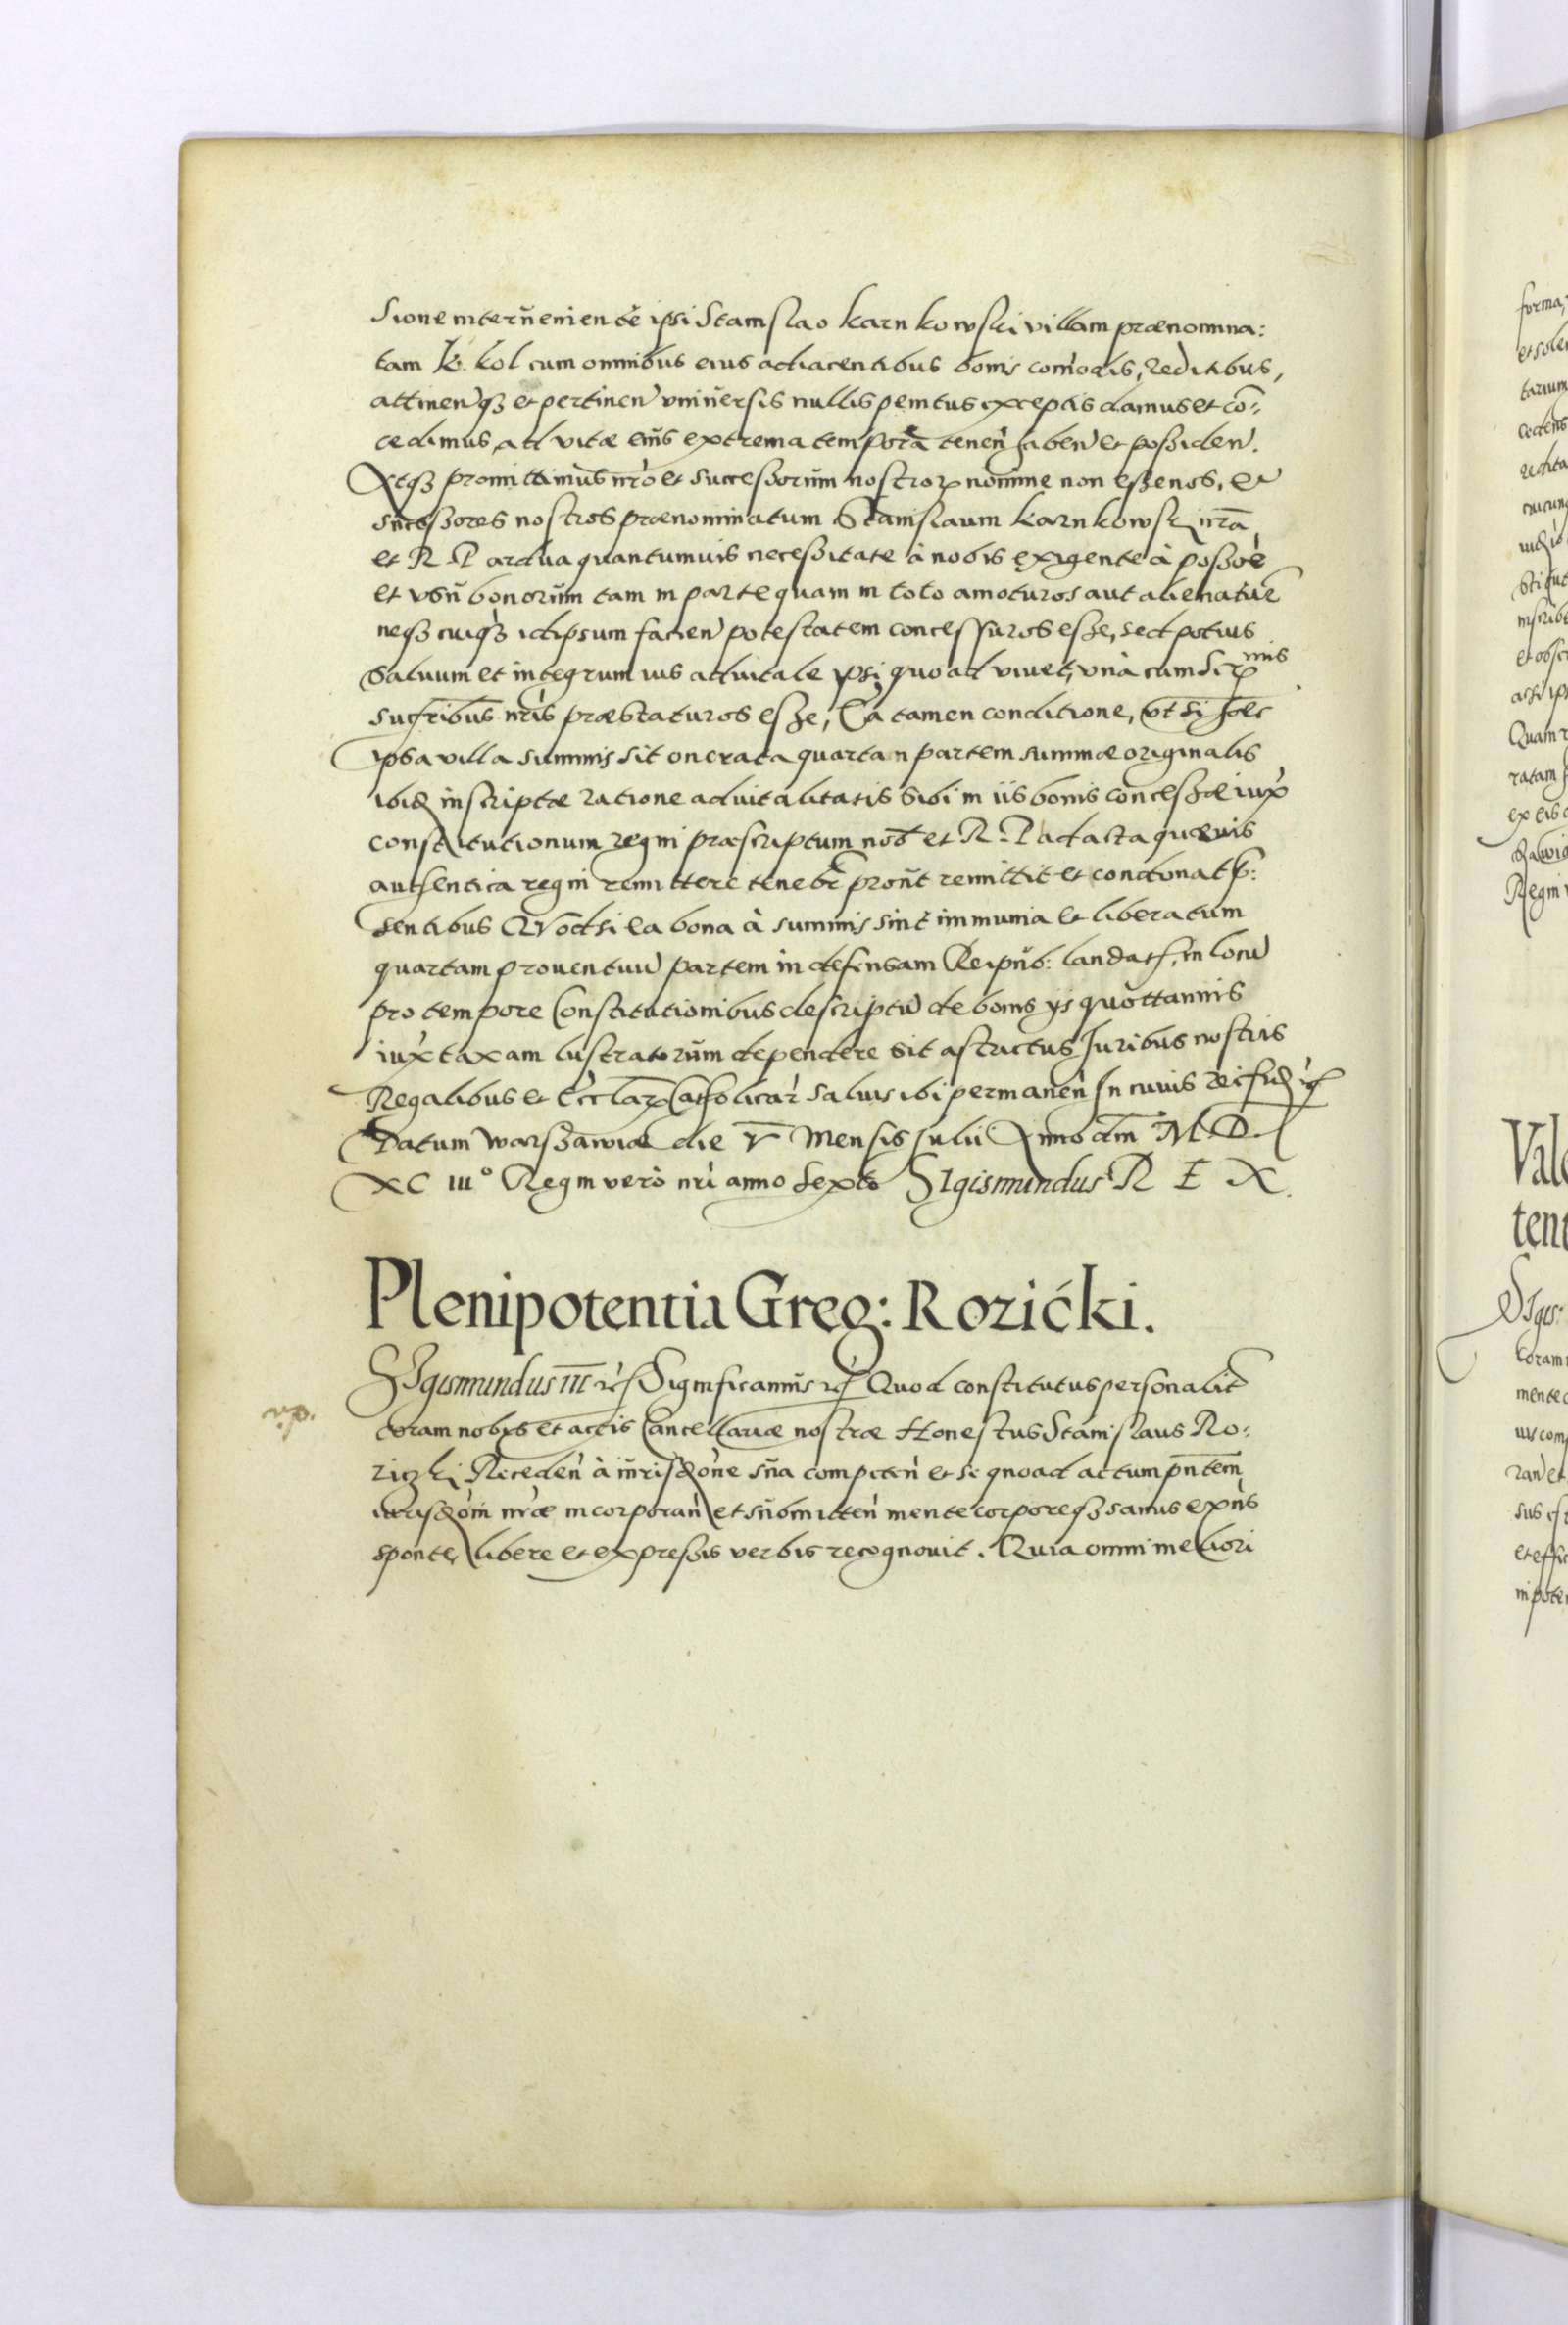 sione interueniente ipsi Stanislao Karnkowski villam prænomina:
tam K. kol cum omnibus eius adiacentibus bonis com̃odis, reditibus,
attinen̈qȝ et pertinen̈ vniuersis nullis penitus exceptis damus et cõ:
cedimus, ad vitæ eius extrema tempora tenen̈ haben̈ et possiden̈.
Atqȝ promittimus nrõ et successorum nostroꝝ nomine non esse nos, et
successores nostros prænominatum Stanislaum Karnkowski nr̃a
et R P ardua quantumuis necessitate à nobis exigente à possoẽ
et vsu bonorum tam in parte quam in toto amoturos aut alienatur̃
neqȝ cuiqȝ idipsum facien̈ potestatem concessuros esse, sed potius
Saluum et integrum ius aduitale ipsi quoad viuet, vnà cum Ser nis
sucribus nr̃is præstaturos esse, Ea tamen conditione, vt si hæc
ipsa villa summis sit onerata quartan partem summæ originalis
ibiđ inscriptæ ratione aduitalitatis sibi in iis bonis concessæ iux̃
constitutionum regni præscriptum nob̃ et R. P ad acta quæuis
authentica regni remittere tenebr̃ prout remittit et condonat p̃:
sentibus Quod si ea bona à summis sint immunia et libera tum
quartam prouentuũ partem in defensam Reipub: landatħ, in locũ
pro tempore Constitutionibus descriptũ de bonis ys quottannis
iux̃ taxam lustratorum dependere sit astrictus Juribus nostris
Regalibus et Eccl̃aꝝ Catholicar̃ saluis ibi permanen̈ In cuius rei fiđ ic̃
Datum Warszawiæ die V Mensis Julii Anno dm̃ M. D.
XC III° Regni verò nr̃i anno sexto SIgismundus R E X.
Plenipotentia Greg: Rozićki.
SIgismundus III ic̃ Significamus ic̃ Quod constitutus personalit̃
coram nobis et actis Cancellariæ nostræ Honestus Stanislaus Ro:
ziczki Receden̈ à iurisđõne sua competen̈ et se quoad actum pñtem
iurisđõni nr̃æ incorporan̈ et submitten̈ mente corporeqȝ sanus exñs
sponte, libere et expressis verbis recognouit. Quia omni meliori